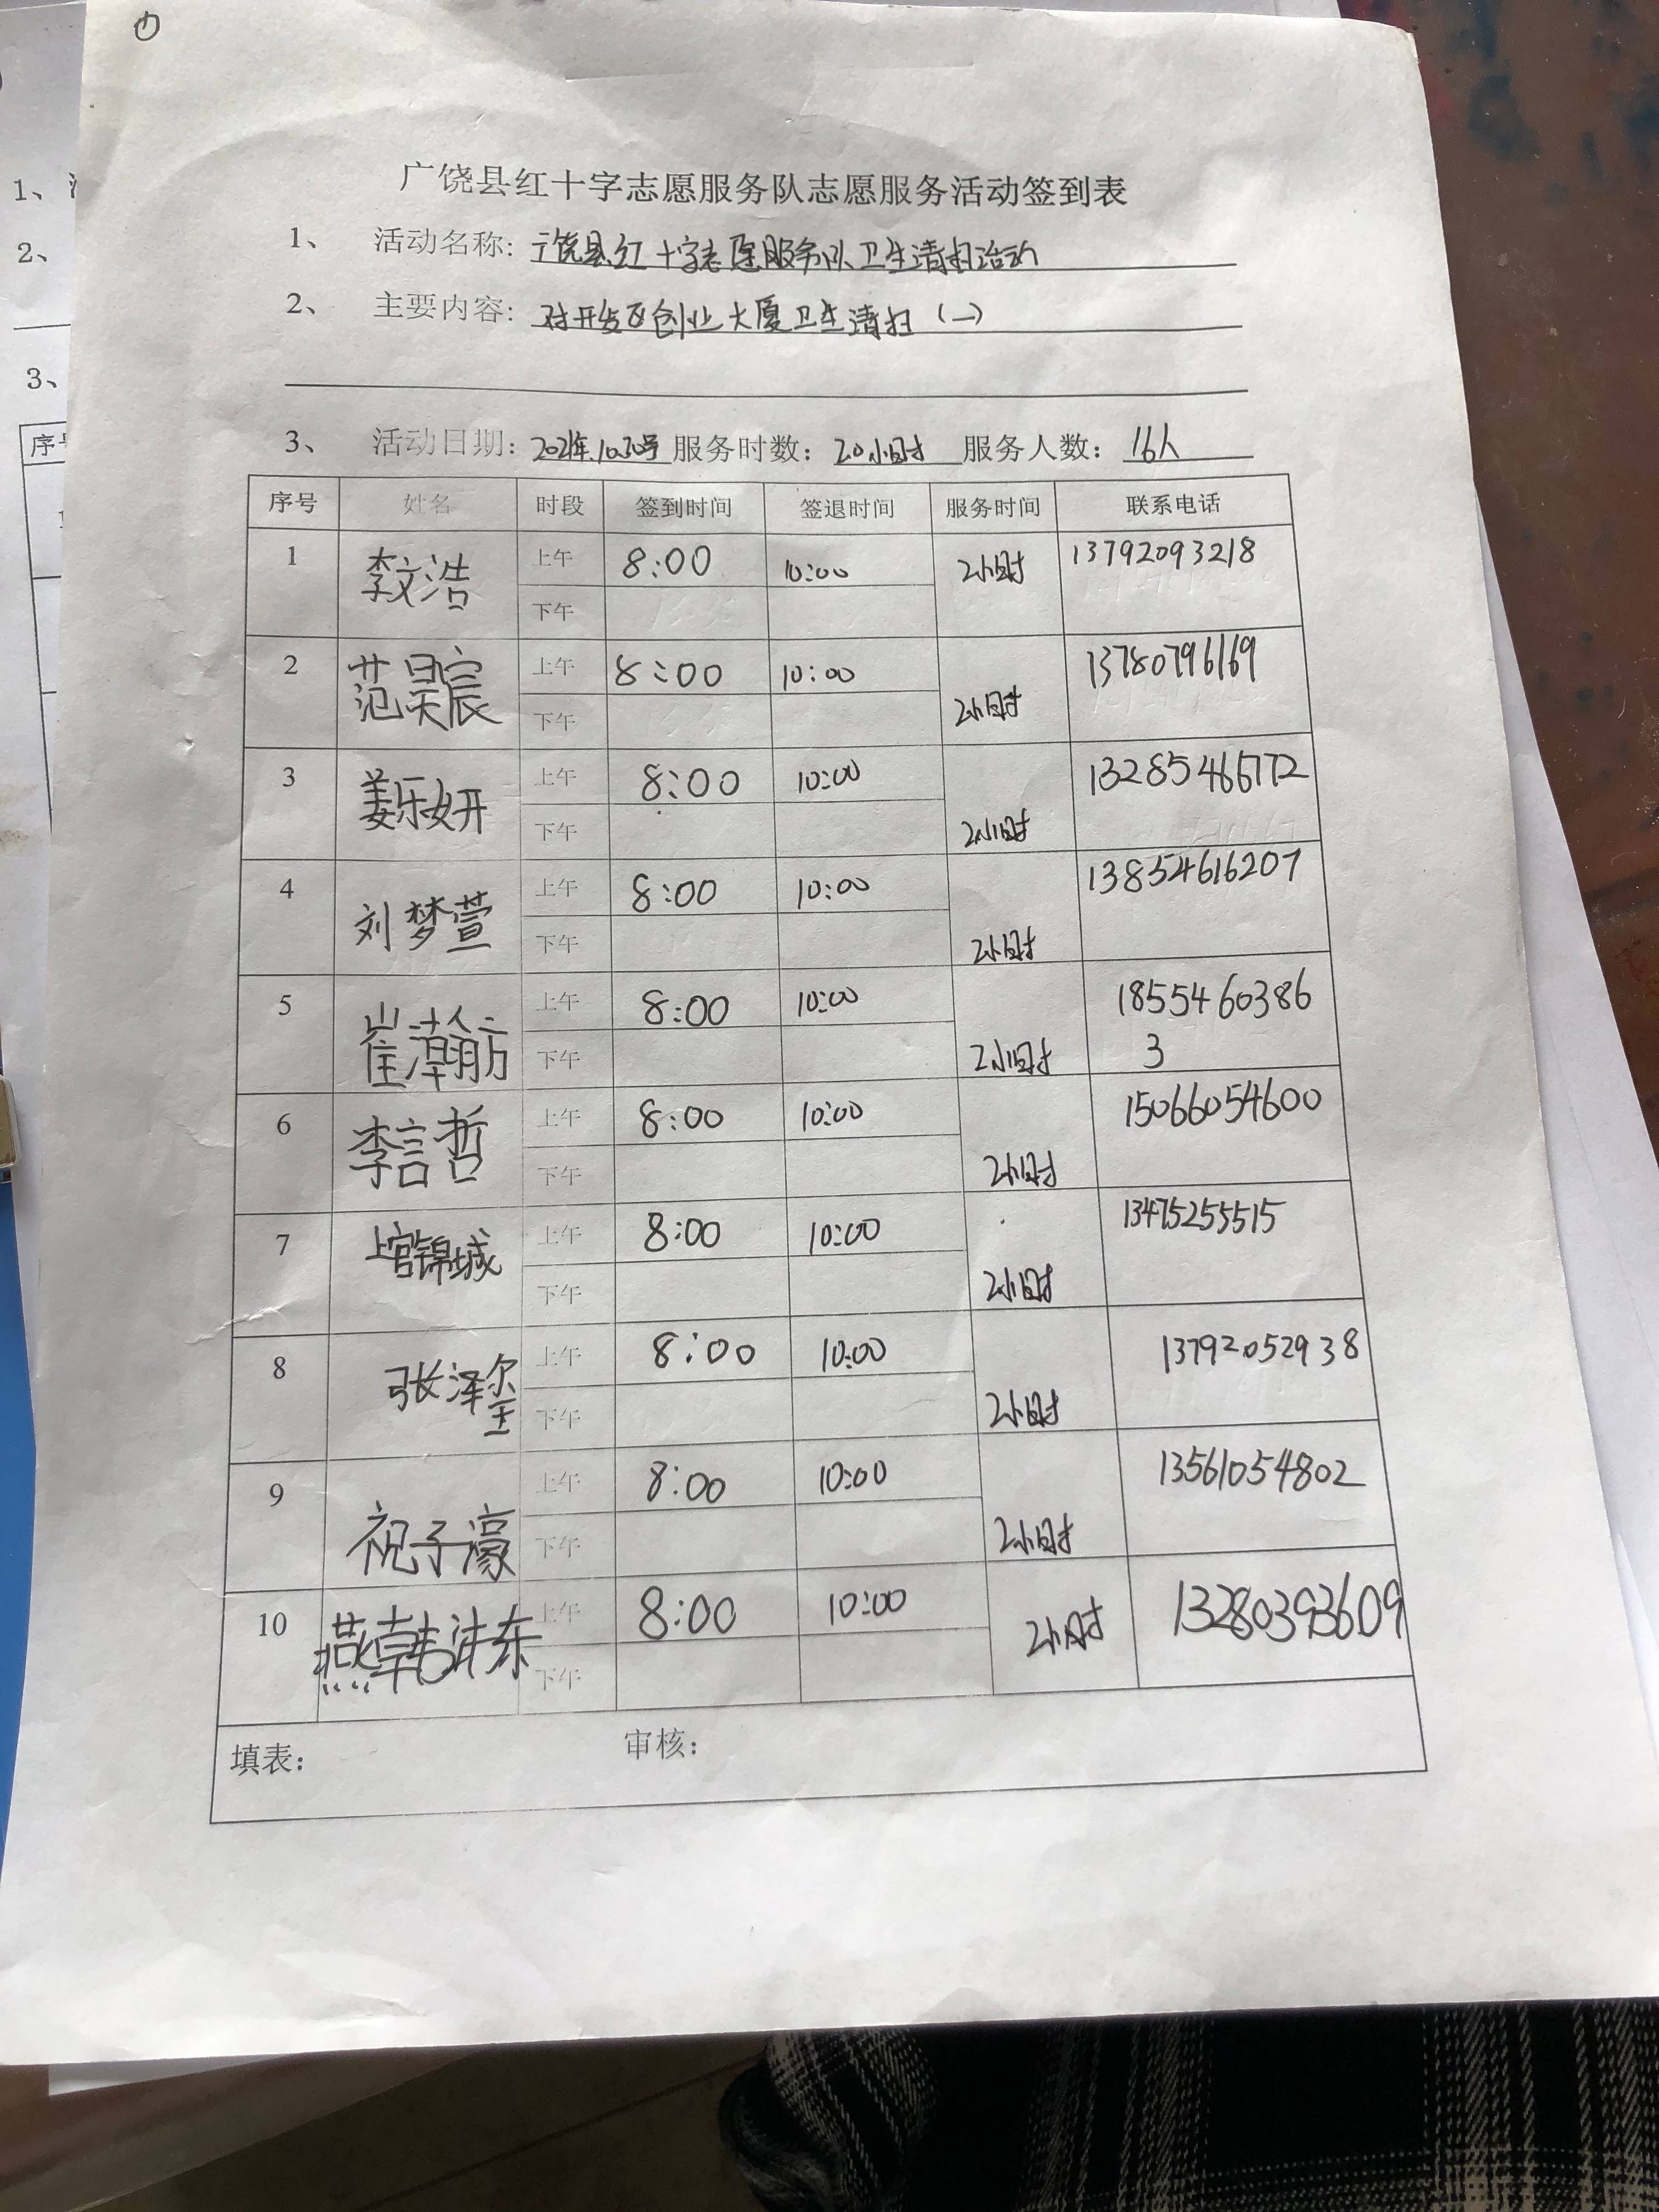 广饶县红十字志愿服务队志愿服务活动签到表
1、 活动名称：广饶县红十字志愿服务队卫生清扫活动
2、 主要内容：对开发区创业大厦卫生清扫（一）
3、 活动日期：2021年.10.30号 服务时数：2.0小时 服务人数：16人
序号 姓名 时段 签到时间 签退时间 服务时间 联系电话
1 李文浩 上午 8:00 10:00 2小时 13792093218
下午
2 范昊宸 上午 8:00 10:00 2小时 13780796169
下午
3 姜乐妍 上午 8:00 10:00 2小时 13285466772
下午
4 刘梦萱 上午 8:00 10:00 2小时 13854616207
下午
5 崔瀚方 上午 8:00 10:00 2小时 1855460386
下午 3
6 李言哲 上午 8:00 10:00 2小时 15066054600
下午
7 上官锦城 上午 8:00 10:00 2小时 13475255515
下午
8 张泽玺 上午 8:00 10:00 2小时 13792052938
下午
9 祝子濠 上午 8:00 10:00 2小时 13561054802
下午
10 燕韩沣东 上午 8:00 10:00 2小时 13280393609
下午
填表： 审核：
1、
2、
3、
序号